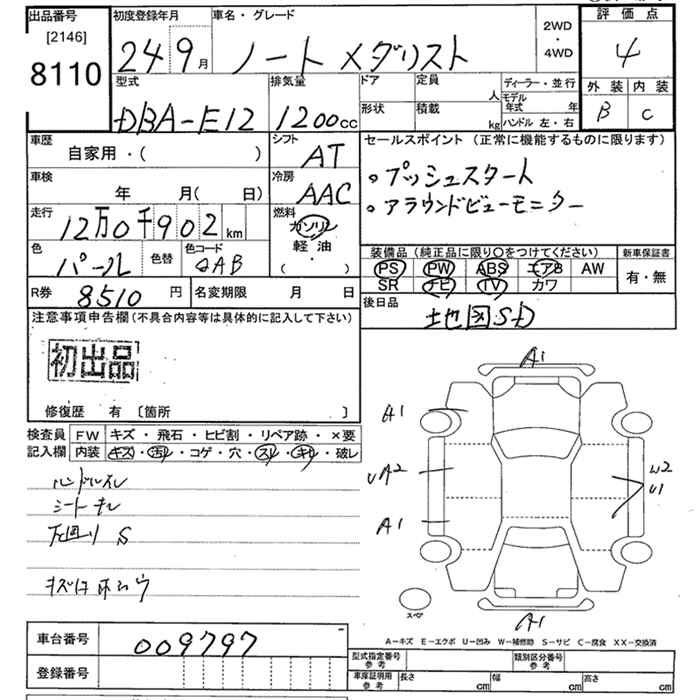 出品番号
[2146]
8110
初度登録年月
24 9月
車名・グレード
ノート メダリスト
2WD
・
4WD
評価点
4
外装 内装
B C
型式
DBA-E12
排気量
1200cc
ドア
定員
人
形状
積載
kg
ディーラー・並行
モデル年式 年
ハンドル 左・右
車歴
自家用・( )
シフト
AT
セールスポイント(正常に機能するものに限ります)
。プッシュスタート
。アラウンドビューモニター
車検
年 月( 日)
冷房
AAC
走行
12万0千902km
燃料
ガソリン
軽油
・
( )
色
パール
色替
色コード
QAB
装備品(純正品に限り〇をつけてください)
PS PW ABS エアB AW
SR ナビ TV カワ
新車保証書
有・無
R券 8510円
名変期限 月 日
後日品
地図SD
注意事項申告欄(不具合内容等は具体的に記入して下さい)
初出品
修復歴 有 〔箇所 〕
検査員記入欄
FW キズ・飛石・ヒビ割・リペア跡・×要
内装 キズ・汚レ・コゲ・穴・スレ・キレ・破レ
ハンドルスレ
シートキレ
下回り S
A1
A1
UA2
A1
W2
U1
スペア
A1
A-キズ E-エクボ U-凹み W-補修跡 S-サビ C-腐食 XX-交換済
車台番号
009797
登録番号
型式指定番号 参考
類別区分番号 参考
車庫証明用 参考
長さ cm
幅 cm
高さ cm